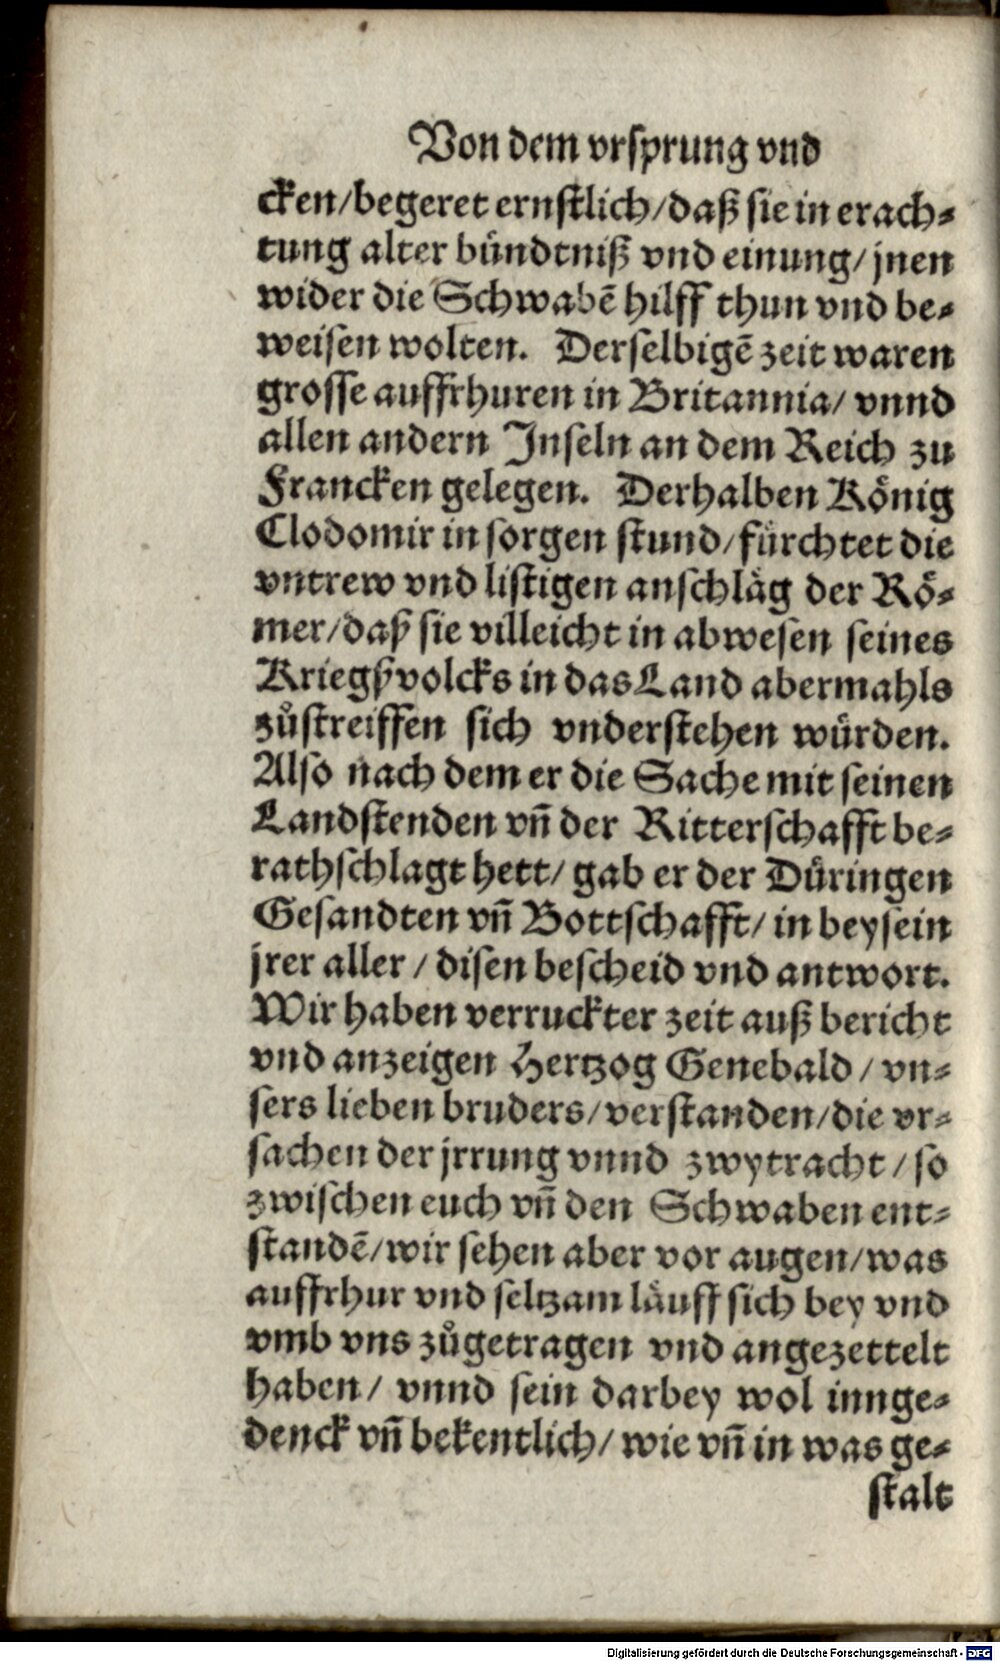 Von dem vrsprung vnd
cken/begeret ernstlich/daß sie in erach⸗
tung alter bündtniß vnd einung/jnen
wider die Schwabẽ hilff thun vnd be⸗
weisen wolten. Derselbigẽ zeit waren
grosse auffrhuren in Britannia/ vnnd
allen andern Inseln an dem Reich zu
Francken gelegen. Derhalben König
Clodomir in sorgen stund/fürchtet die
vntrew vnd listigen anschläg der Rö⸗
mer/daß sie villeicht in abwesen seines
Kriegßvolcks in das Land abermahls
zůstreiffen sich vnderstehen würden.
Also nach dem er die Sache mit seinen
Landstenden vñ der Ritterschafft be⸗
rathschlagt hett/ gab er der Düringen
Gesandten vñ Bottschafft/ in beysein
jrer aller / disen bescheid vnd antwort.
Wir haben verruckter zeit auß bericht
vnd anzeigen Hertzog Genebald / vn⸗
sers lieben bruders/verstanden/die vr⸗
sachen der jrrung vnnd zwytracht / so
zwischen euch vñ den Schwaben ent⸗
standẽ/wir sehen aber vor augen/was
auffrhur vnd seltzam läuff sich bey vnd
vmb vns zůgetragen vnd angezettelt
haben/ vnnd sein darbey wol innge⸗
denck vñ bekentlich/ wie vñ in was ge⸗
stalt
Digitalisierung gefördert durch die Deutsche Forschungsgemeinschaft - DFG